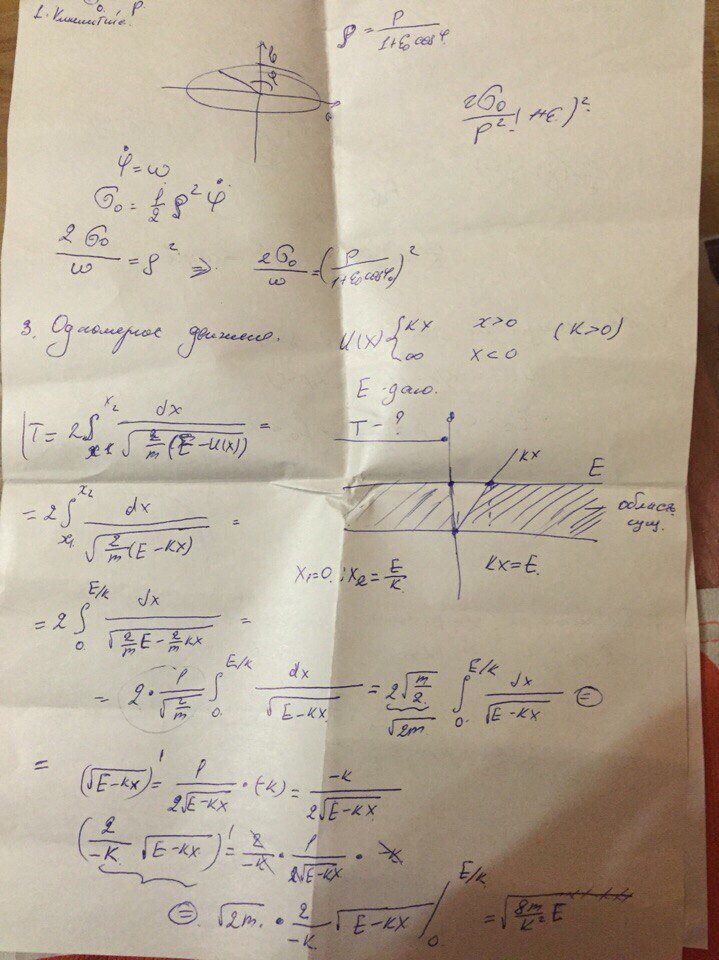 1. Кинематика.
ρ = P / (1+ε₀cosφ)
2σ₀ / P² (1+ε)²
φ̇ = ω
σ₀ = 1/2 ρ² φ̇
2σ₀/ω = ρ² ⇒ 2σ₀/ω = (P / (1+ε₀cosφ₀))²
3. Одномерное движение.
U(x) { kx x>0 (k>0)
∞ x<0
E - дано.
T - ?
T = 2 ∫_{x1}^{x2} dx / √(2/m (E - U(x))) =
kx E
область сущ.
= 2 ∫_{x1}^{x2} dx / √(2/m (E - kx)) =
x₁=0. ; x₂ = E/k kx = E.
= 2 ∫_{0}^{E/k} dx / √(2/m E - 2/m kx) =
= 2 · 1/√(2/m) ∫_{0}^{E/k} dx / √(E - kx) = 2√(m/2) ∫_{0}^{E/k} dx / √(E - kx) ⊜
√2m
= (√(E - kx))' = 1 / (2√(E - kx)) · (-k) = -k / (2√(E - kx))
(2/-k √(E - kx))' = 2/-k · 1 / (2√(E - kx)) · -k
⊜ √2m · 2/-k √(E - kx) |_{0}^{E/k} = √(8m/k² E)